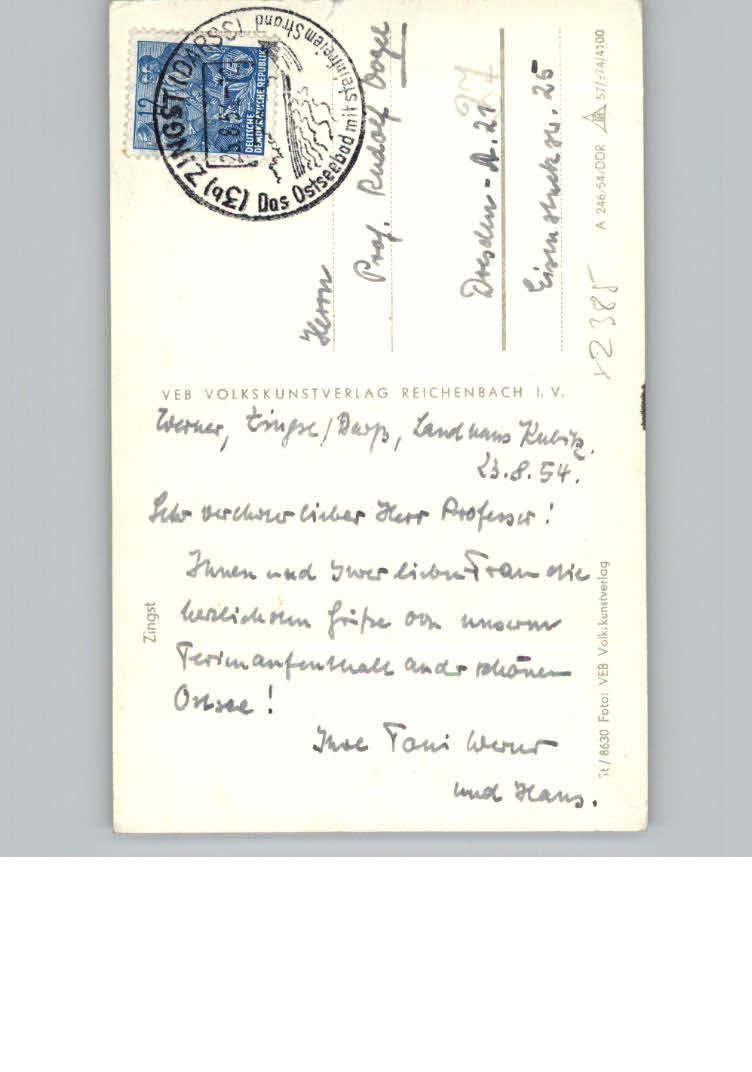 (3b) ZINGST (DARSS)
Das Ostseebad mit steinfreiem Strand
23.8.54
12
DEUTSCHE
DEMOKRATISCHE REPUBLIK
Herrn
Prof. Rudolf
Dresden - A. 21
27
Eisenstuckstr. 25
A 246/54/DDR 57/374/4100
x2385
VEB VOLKSKUNSTVERLAG REICHENBACH I. V.
Werner, Zingst/Darß, Landhaus Kubitz.
23.8.54.
Sehr verehrter lieber Herr Professor!
Ihnen und Ihrer lieben Frau die
herzlichsten Grüße von unserem
Ferienaufenthalt an der schönen
Ostsee!
Ihre Toni Werner
und Hans.
Zingst
St/8630 Foto: VEB Volkskunstverlag